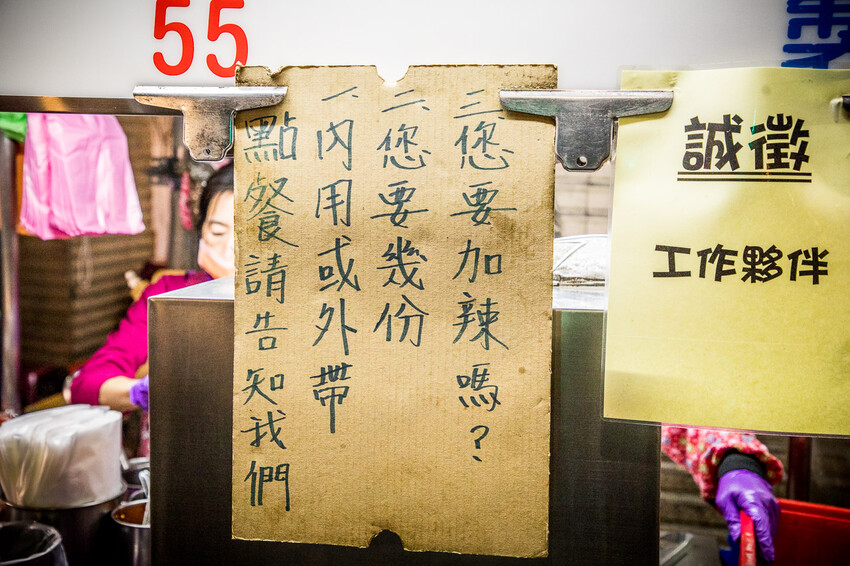 55
點餐請告知我們
一、內用或外帶
二、您要幾份
三、您要加辣嗎?
誠徵
工作夥伴